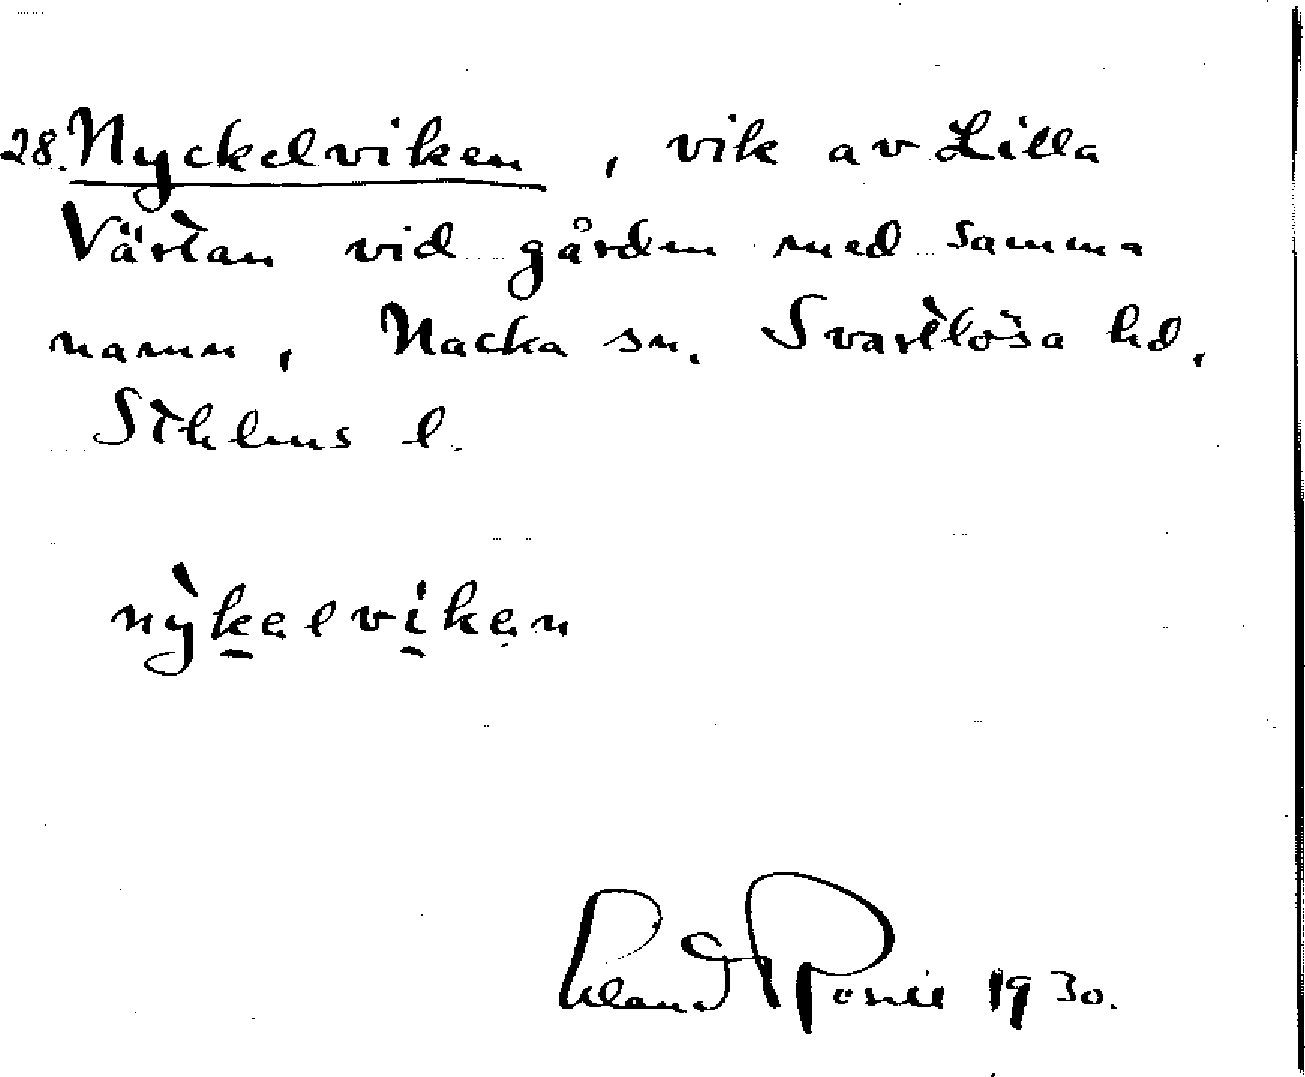 28. Nyckelviken, vik av Lilla
Värtan vid gården med samma
namn, Nacka sn. Svartlösa hd,
Sthlms l.
nỳkelviken
1930.